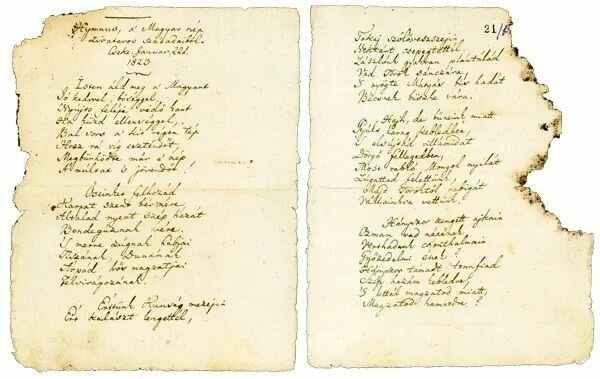 Hymnus, a' Magyar nép
zivataros századaiból.
Cseke. Januar. 22d.
1823
Isten áld meg a' Magyart
Jó kedvvel, bőséggel,
Nyújts feléje védő kart
Ha küzd ellenséggel,
Bal sors a' kit régen tép
Hozz rá víg esztendőt,
Megbünhödte már e' nép
A' multat 's jövendőt!
Őseinket felhozád
Kárpát szent bérczére,
Általad nyert szép hazát
Bendegúznak vére.
'S merre zúgnak habjai
Tiszának, Dunának
Árpád hős magzatjai
Felvirágozának.
Értünk Kunság mezein
Ért kalászt lengettél,
21/
Tokaj szőlővesszein
Nektárt csepegtettél.
Zászlónk gyakran plántálád
Vad Török sánczára,
'S nyögte Mátyás bús hadát
Bécsnek büszke vára.
Hajh, de büneink miatt
Gyúlt harag kebledben,
'S elsújtád villámidat
Dörgő fellegedben,
Most rabló Mongol nyilát
Zúgattad felettünk,
Majd Töröktől rabigát
Vállainkra vettünk.
Hányszor zengett ajkain
Ozman vad népének,
Vert hadunk csonthalmain
Győzedelmi ének?
Hányszor támadt tennfiad
Szép hazám kebledre,
'S lettél magzatod miatt,
Magzatod hamvvedre?